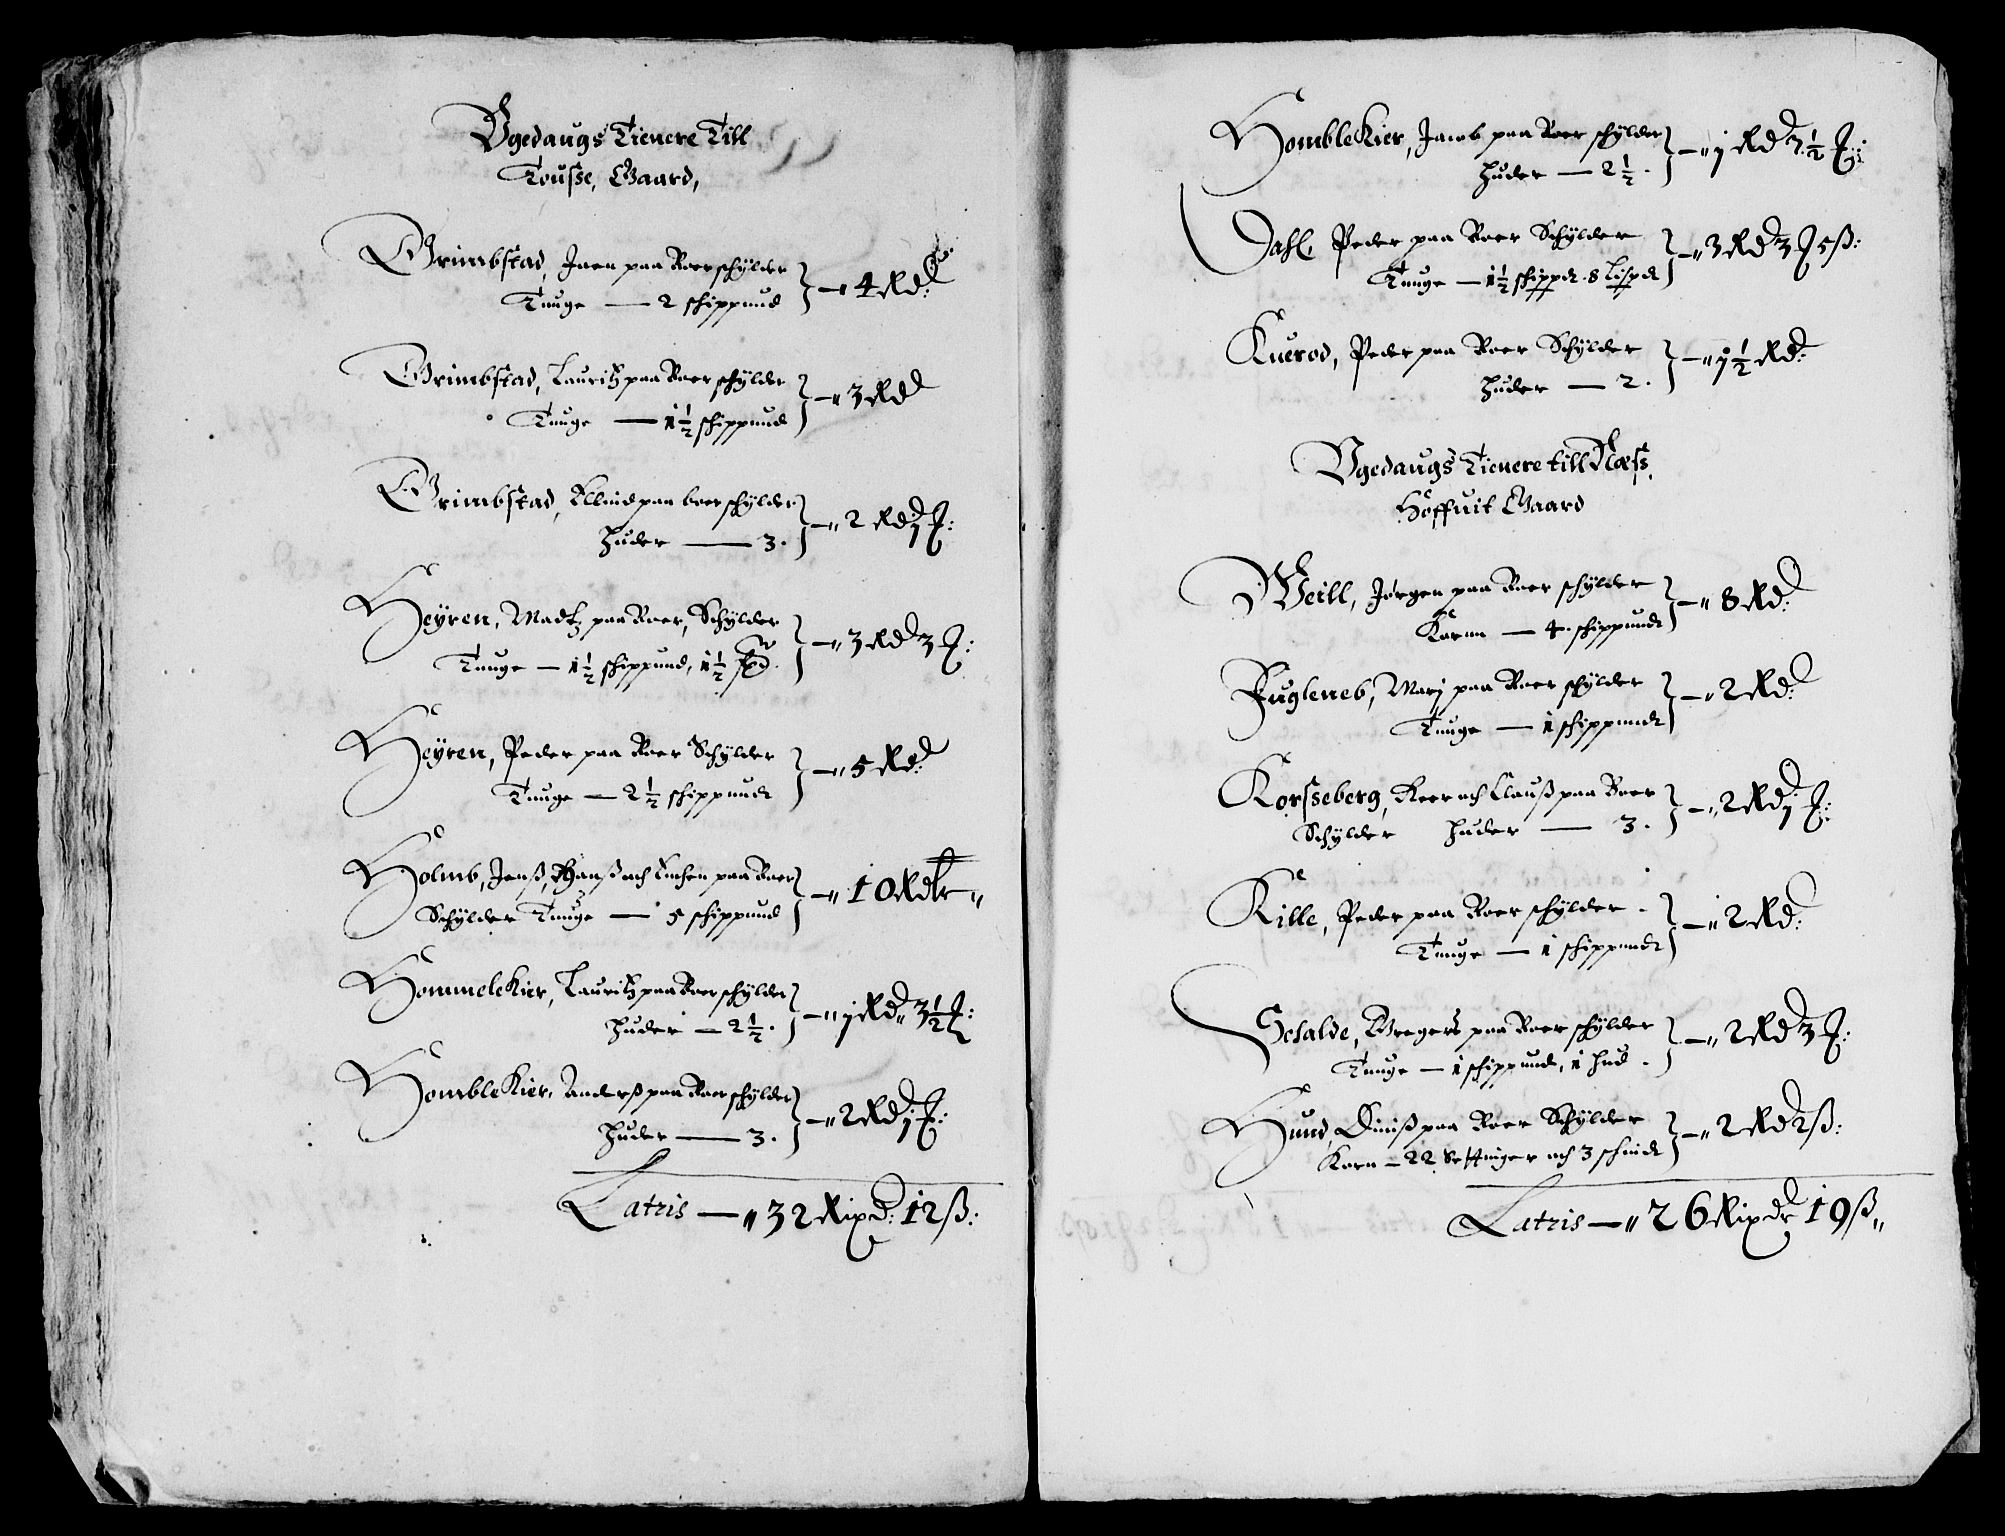 Vgedaugs Tienere Till
Tousse, Gaard,
Grimbstad, Joen paa Boer schylder
Tunge — 2 schippund } — 4 Rd:
Grimbstad, Lauritz paa Boer schylder
Tunge — 1½ schippund } — 3 Rd
Grimbstad, Elluid paa boer schylder
huder — 3. } — 2 Rd j
Heyren, Madtz paa Boer, Schylder
Tunge — 1½ schippund, 1½ } — 3 Rd 3
Heyren, Peder paa Boer Schylder
Tunge — 2½ schippundt } — 5 Rd:
Holmb, Jenß, Hanß och paa Boer
Schylder Tunge — 5 schippund } — 10 Rdlr
Hommelekier, Lauritz paa Boer schylder
huder — 2½. } — j Rd 3½
Homblekier, Anderß paa Boer schylder
huder — 3. } — 2 Rd j
Latris — 32 Rixd: 12 ß:
Homblekier, Jacob paa Boer schylder
huder — 2½. } — j Rd 3½
Dahl, Peder paa Boer Schylder
Tunge — 1½ schippdt. 8 Lispdt } — 3 Rd 3 5 ß:
Kuerod, Peder paa Boer Schylder
huder — 2. } — j½ Rd:
Vgedaugs Tienere till Næss
Höffuit Gaard
Weill, Jørgen paa Boer schylder
Kornn — 4. schippundt } — 8 Rd:
Fugleneb, Marj paa Boer schylder
Tunge — 1 schippundt } — 2 Rd:
Korsseberg, Peer och Clauß paa Boer
Schylder huder — 3. } — 2 Rd j
Kille, Peder paa Boer schylder
Tunge — 1 schippundt } — 2 Rd:
Schalde, Gregers paa Boer schylder
Tunge — 1 schippund, 1 hud. } — 2 Rd 3
Hund, Diniß paa Boer Schylder
Korn — 22 Settinger och 3 schindt } — 2 Rd 2 ß:
Latris — 26 Rixdr 19 ß